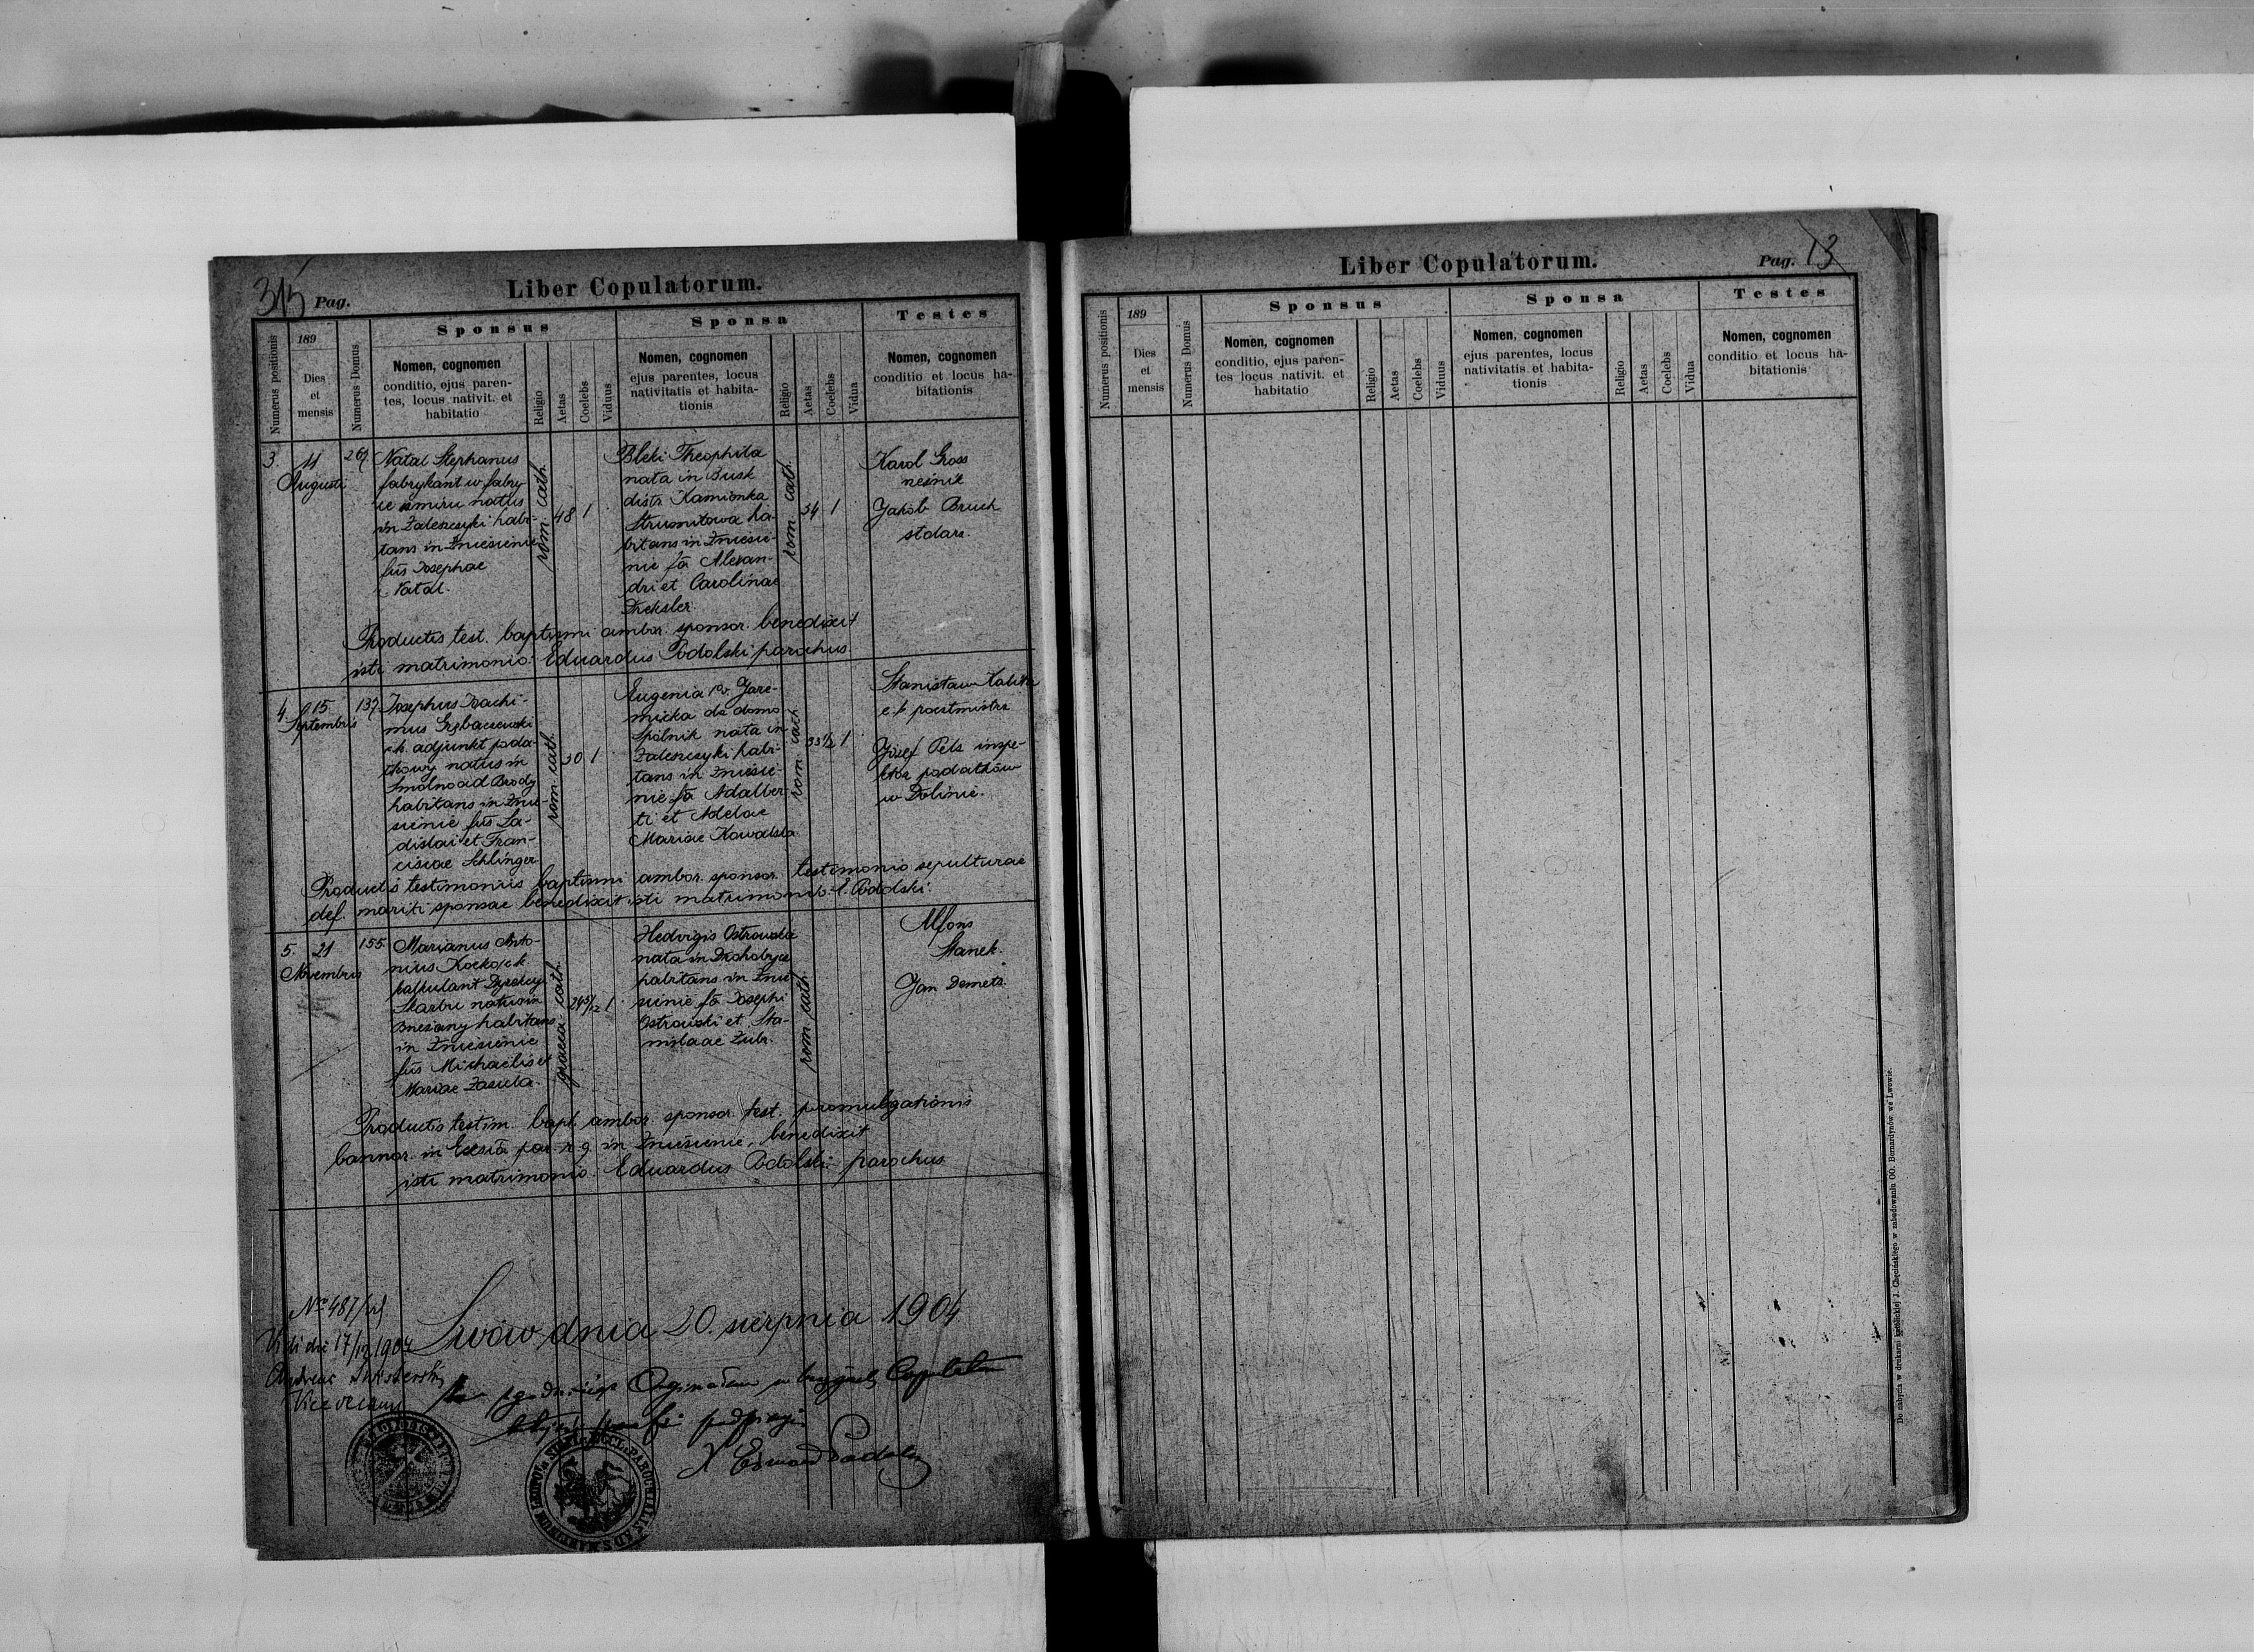 315 Pag.
Liber Copulatorum.
Numerus positionis
189
Dies
et
mensis
Numerus Domus
Sponsus
Nomen, cognomen
conditio, ejus paren-
tes, locus nativit. et
habitatio
Religio
Aetas
Coelebs
Viduus
Sponsa
Nomen, cognomen
ejus parentes, locus
nativitatis et habita-
tionis
Religio
Aetas
Coelebs
Vidua
Testes
Nomen, cognomen
conditio et locus ha-
bitationis
3.
11
Augusti
267.
Natal Stephanus
fabrykant w fabry
ce żmiru natus
in Zaleszczyki habi-
tans in Zniesienie
fus Josephae
Natal.
rom. cath.
48
1
Bleki Theophila
nata in Busk
distr Kamionka
Strumiłowa ha-
bitans in Zniesie-
nie fa Alexan-
dri et Carolinae
Dreksler
rom. cath.
34
1
Karol Gross
rzeźnik
Jakób Bruch
stolarz.
Productis test. baptismi ambor. sponsor. benedixit
isti matrimonio: Eduardus Podolski parochus.
4.
15
Septembris
137.
Josephus Joachi-
mus Grębaczewski
c.k. adjunkt poda-
tkowy natus in
Smolno ad Brody
habitans in Znie-
sienie fus La-
dislai et Fran-
ciscae Schlinger
rom. cath.
30
1
Eugenia 1o v. Jare-
micka de domo
Spólnik nata in
Zaleszczyki habi-
tans in Zniesie-
nie fa Adalber-
ti et Adelae
Mariae Kowalska
rom. cath.
33 1/2
1
Stanisław
c.k. pocztmistrz
Józef Pelz inspe-
ktor podatków
w Dolinie.
Productis testimoniis baptismi ambor. sponsor. testimonio sepulturae
def. mariti sponsae benedixit isti matrimonio: E. Podolski.
5.
21
Novembris
155.
Marianus Anto-
nius c.k.
kalkulant Dyrekcyi
Skarbu natus in
Brzeżany habitans
in Zniesienie
fus Michaelis et
Mariae Zasula.
graeca cath.
24 5/12
1
Hedvigis Ostrowska
nata in Drohobycz
habitans in Znie
sienie fa Josephi
Ostrowski et Sta-
nislaae Zubr.
rom. cath.
Alfons
Stanek.
Jan Demetr.
Productis testim. bapt. ambor. sponsor. test. promulgationis
bannor. in Ecclsia par. r. g. in Zniesienie, benedixit
isti matrimonio: Eduardus Podolski parochus
No 487/
Vidi die 17/ 1904
Andreas
Vicedecanus
Lwów dnia 20. sierpnia 1904
Copulatorum
X Edward Podolski
Liber Copulatorum.
Pag. 13
Numerus positionis
189
Dies
et
mensis
Numerus Domus
Sponsus
Nomen, cognomen
conditio, ejus paren-
tes locus nativit. et
habitatio
Religio
Aetas
Coelebs
Viduus
Sponsa
Nomen, cognomen
ejus parentes, locus
nativitatis et habita-
tionis
Religio
Aetas
Coelebs
Vidua
Testes
Nomen, cognomen
conditio et locus ha-
bitationis
Do nabycia w drukarni katolickiej J. Chęcińskiego w zabudowaniu OO. Bernardynów we Lwowie.